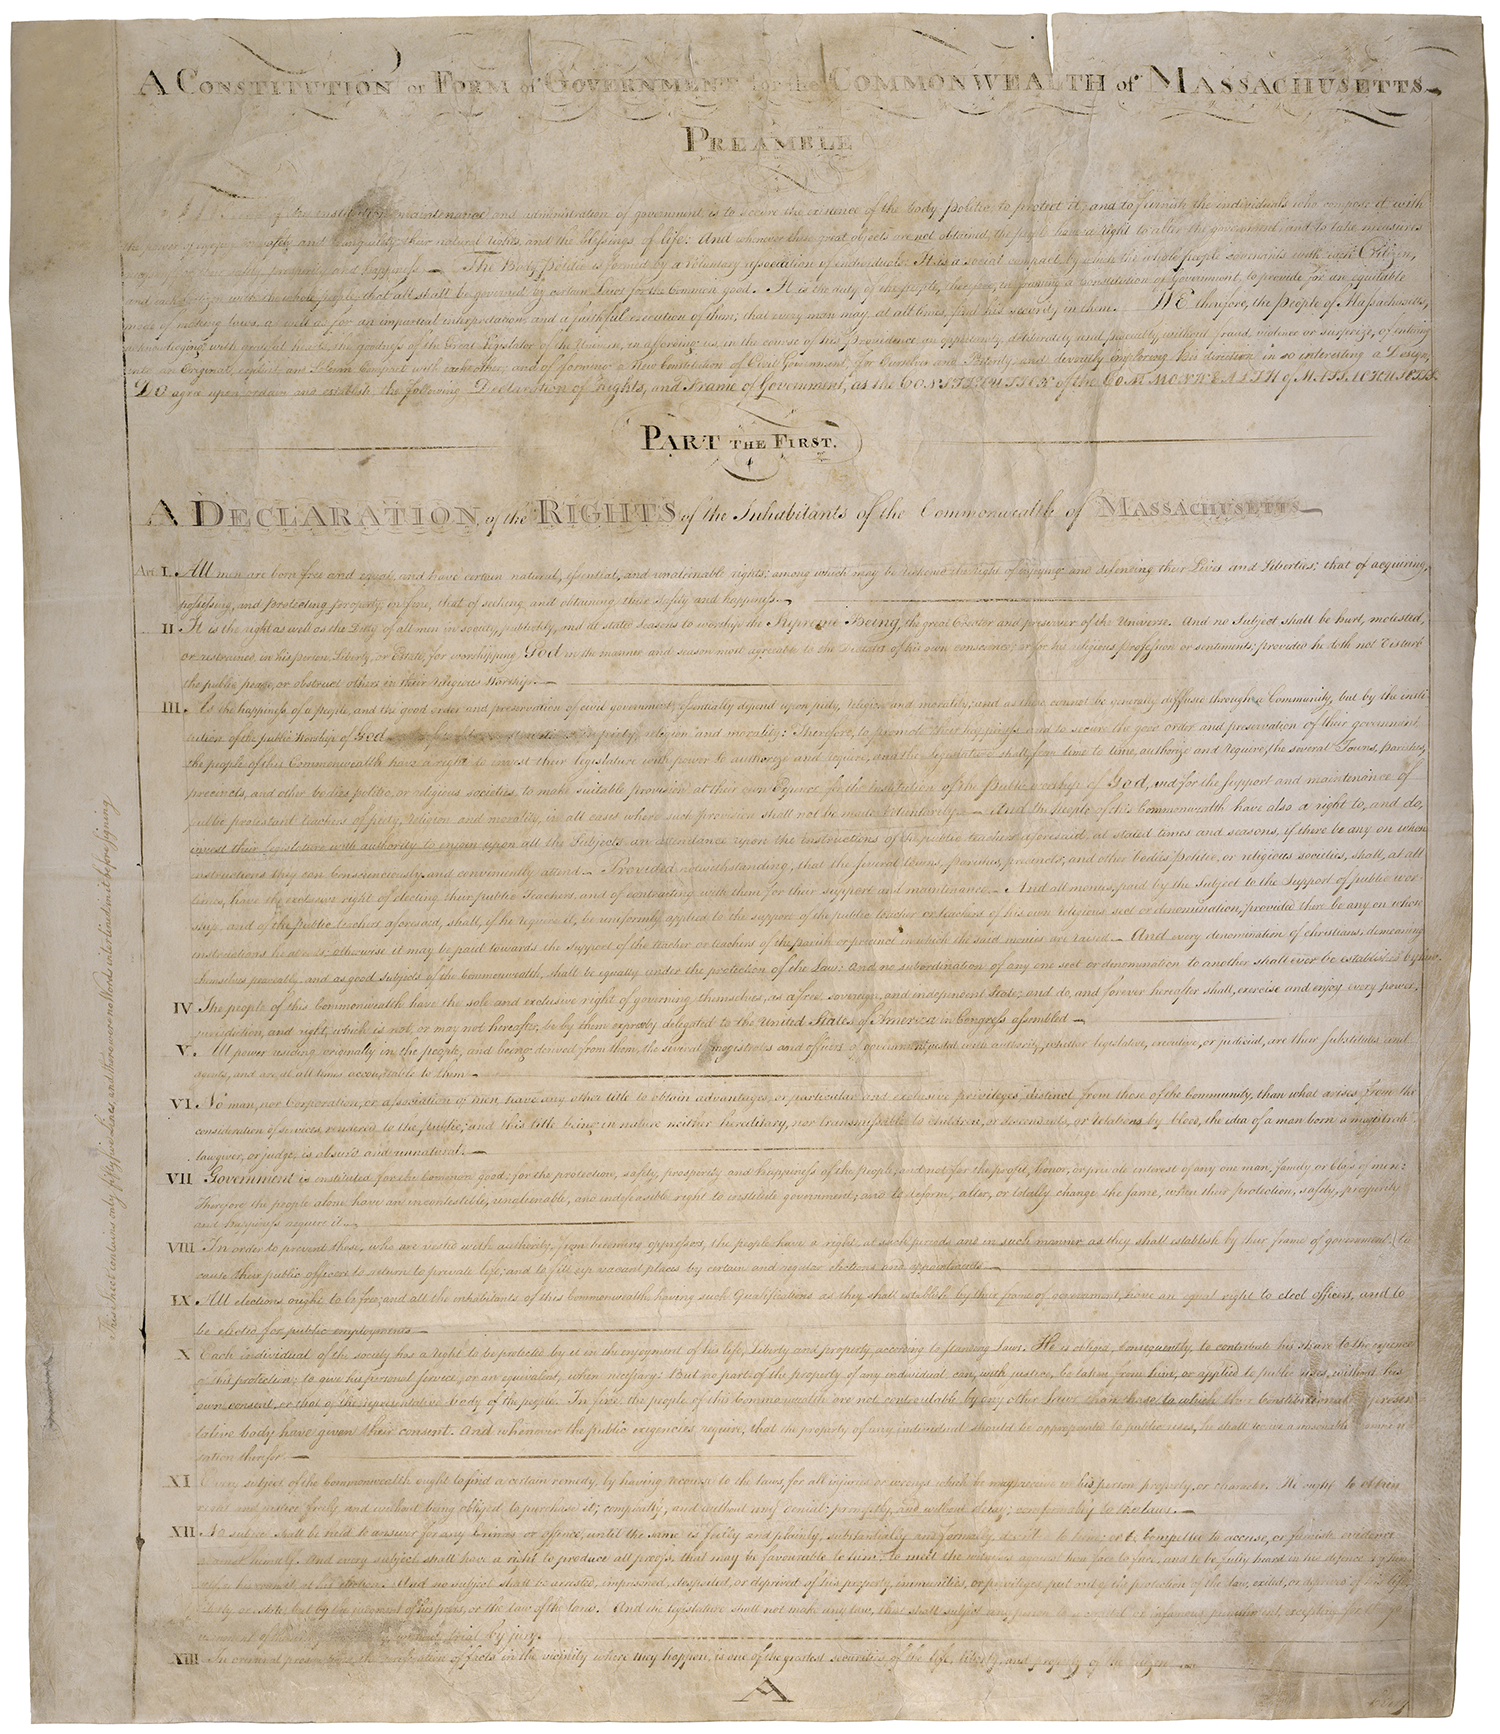 A CONSTITUTION or FORM of GOVERNMENT for the COMMONWEALTH of MASSACHUSETTS
PREAMBLE
of the institution, maintenance and administration of government is to secure the existence of the body politic; to protect it; and to furnish the individuals who compose it with
the power of enjoying in safety and tranquility their natural rights, and the blessings of life: And whenever these great objects are not obtained, the people have a right to alter the government, and to take measures
necessary for their safety, prosperity and happiness. The Body Politic is formed by a voluntary association of individuals: It is a social compact, by which the whole people covenants with each Citizen,
and each citizen with the whole people, that all shall be governed by certain Laws for the Common good. It is the duty of the people, therefore, in framing a Constitution of Government, to provide for an equitable
mode of making laws, as well as for an impartial interpretation, and a faithful execution of them; that every man may, at all times, find his security in them. WE therefore, the people of Massachusetts,
acknowledging, with grateful hearts, the goodness of the Great Legislator of the Universe, in affording us, in the course of his Providence, an opportunity, deliberately and peaceably, without fraud, violence or surprize, of entering
into an Original, explicit, and Solemn Compact with each other; and of forming a New Constitution of Civil Government for Ourselves and Posterity; and devoutly imploring His direction in so interesting a Design,
DO agree upon, ordain and establish the following Declaration of Rights, and Frame of Government, as the CONSTITUTION of the COMMONWEALTH of MASSACHUSETTS.
PART THE FIRST.
A DECLARATION of the RIGHTS of the Inhabitants of the Commonwealth of MASSACHUSETTS
Art. I. All men are born free and equal, and have certain natural, essential, and unalienable rights; among which may be reckoned the right of enjoying and defending their Lives and Liberties; that of acquiring,
possessing, and protecting property; in fine, that of seeking and obtaining their safety and happiness.
II It is the right as well as the Duty of all men in society, publickly, and at stated Seasons to worship the Supreme Being, the great Creator and preserver of the Universe. And no Subject shall be hurt, molested,
or restrained, in his person, Liberty, or Estate, for worshipping God in the manner and season most agreeable to the Dictates of his own conscience; or for his religious profession or sentiments; provided he doth not Disturb
the public peace, or obstruct others in their religious Worship.
III. As the happiness of a people, and the good order and preservation of civil government, essentially depend upon piety, religion and morality; and as these cannot be generally diffused through a Community, but by the insti-
tution of the public Worship of God piety, religion and morality: Therefore, to promote their happiness and to secure the good order and preservation of their government,
the people of this Commonwealth have a right to invest their legislature with power to authorize and require, and the legislature shall, from time to time, authorize and require, the several Towns, Parishes,
precincts, and other bodies politic, or religious societies, to make suitable provision, at their own Expence, for the Institution of the Public worship of God, and for the support and maintenance of
public protestant teachers of piety, religion and morality, in all cases where such provision shall not be made Voluntarily. And the People of this Commonwealth have also a right to, and do,
invest their legislature with authority to enjoin upon all the Subjects an attendance upon the instructions of the public teachers aforesaid, at stated times and seasons, if there be any on whose
instructions they can Conscienciously and conveniently attend. Provided notwithstanding, that the several towns, parishes, precincts, and other bodies politic, or religious societies, shall, at all
times, have the exclusive right of electing their public Teachers, and of contracting with them for their support and maintenance. And all monies, paid by the Subject to the Support of public wor-
ship, and of the Public teachers aforesaid, shall, if he require it, be uniformly applied to the support of the public teacher or teachers of his own religious sect or denomination, provided there be any on whose
instructions he attends; otherwise it may be paid towards the support of the teacher or teachers of the parish or precinct in which the said monies are raised. And every denomination of christians, demeaning
themselves peaceably, and as good Subjects of the Commonwealth, shall be equally under the protection of the Law: And no subordination of any one sect or denomination to another shall ever be established by law.
IV The people of this Commonwealth have the sole and exclusive right of governing themselves, as a free, sovereign, and independent State; and do, and forever hereafter shall, exercise and enjoy every power,
jurisdiction, and right, which is not, or may not hereafter, be by them expressly delegated to the United States of America in Congress assembled
V. All power residing originally in the people, and being derived from them, the several magistrates and officers of government, vested with authority, whether legislative, executive, or judicial, are their substitutes and
agents, and are at all times accountable to them
VI No man, nor Corporation, or association of men, have any other title to obtain advantages, or particular and exclusive privileges, distinct from those of the Community, than what arises from the
consideration of services rendered to the public; and this title being in nature neither hereditary, nor transmissible to children, or descendants, or relations by blood, the idea of a man born a magistrate
lawgiver, or judge, is absurd and unnatural.
VII Government is instituted for the Common good; for the protection, safety, prosperity and happiness of the people; and not for the profit, honor, or private interest of any one man, family, or Class of men:
Therefore the people alone have an incontestible, unalienable, and indefeasible right to institute government; and to reform, alter, or totally change the same, when their protection, safety, prosperity
and happiness require it.
VIII In order to prevent those, who are vested with authority, from becoming oppressors, the people have a right, at such periods and in such manner as they shall establish by their frame of government, to
cause their public officers to return to private life; and to fill up vacant places by certain and regular elections and appointments
IX All elections ought to be free; and all the inhabitants of this Commonwealth, having such Qualifications as they shall establish by their frame of government, have an equal right to elect officers, and to
be elected for public employments
X Each individual of the society has a right to be protected by it in the enjoyment of his life, Liberty and property, according to standing Laws. He is obliged, Consequently, to contribute his share to the expence
of this protection; to give his personal service, or an equivalent, when necessary: But no part of the property of any individual, can, with justice, be taken from him, or applied to public uses, without his
own consent, or that of the representative body of the people. In fine, the people of this Commonwealth are not controulable by any other laws than those to which their Constitutional represen-
tative body have given their consent. And whenever the public exigencies require, that the property of any individual should be appropriated to public uses, he shall receive a reasonable compen-
sation therefor.
XI Every subject of the Commonwealth ought to find a certain remedy, by having recourse to the laws, for all injuries or wrongs which he may receive in his person, property, or character. He ought to obtain
right and justice freely, and without being obliged to purchase it; compleatly, and without any denial; promptly, and without delay; conformably to the laws.
XII No subject shall be held to answer for any Crimes or offence, until the same is fully and plainly, substantially and formally, described to him; or be Compelled to accuse, or furnish evidence
against himself. And every subject shall have a right to produce all proofs, that may be favourable to him; to meet the witnesses against him face to face, and to be fully heard in his defence by him-
self, or his council, at his election. And no subject shall be arrested, imprisoned, despoiled, or deprived of his property, immunities, or privileges, put out of the protection of the law, exiled, or deprived of his life,
liberty or estate; but by the judgment of his peers, or the law of the land. And the legislature shall not make any law, that shall subject any person to a capital or infamous punishment, excepting for the go-
vernment of without trial by jury.
XIII In criminal prosecutions, the verification of facts in the vicinity where they happen, is one of the greatest securities of the life, liberty, and property of the citizen
A
This sheet contains only fifty five lines, and there were no Words interlined in it before signing